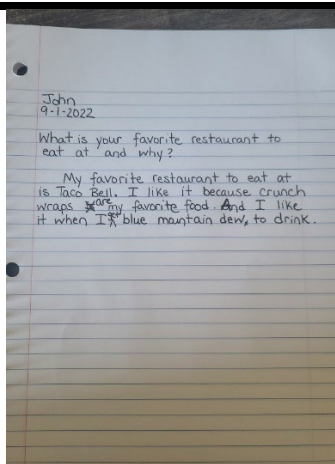 John
9-1-2022
What is your favorite restaurant to
eat at and why?
My favorite restaurant to eat at
is Taco Bell. I like it because crunch
wraps are my favorite food. And I like
it when I get blue mountain dew, to drink.